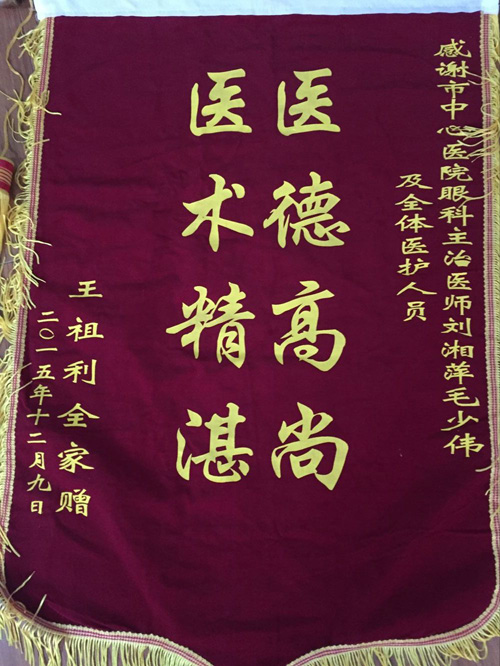 感谢市中心医院眼科主治医师刘湘萍毛少伟
及全体医护人员
医德高尚
医术精湛
王祖利全家赠
二〇一五年十二月九日